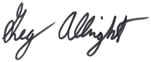 Greg Allright